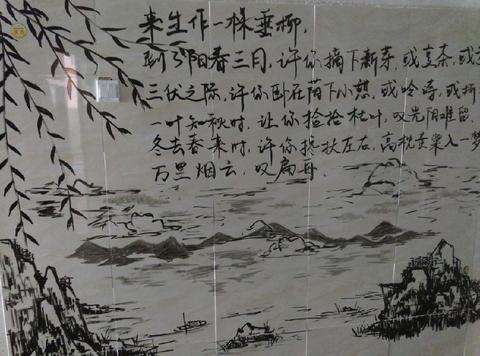 来生作一株垂柳,
到了阳春三月,许你摘下新芽,或烹茶,或
三伏之际,许你卧在荫下小憩,或吟诗,或
一叶知秋时,让你捡拾枯叶,叹光阴难留,
冬去春来时,许你搀扶左右,高枕黄粱入一梦
万里烟云,叹扁舟.